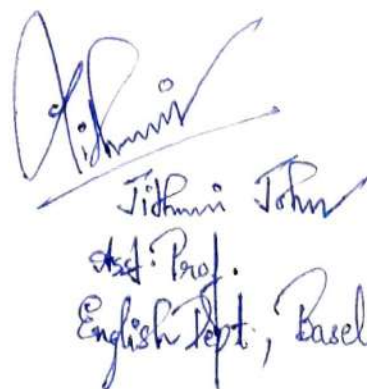 Jithmi John
Asst. Prof.
English Dept, Basel